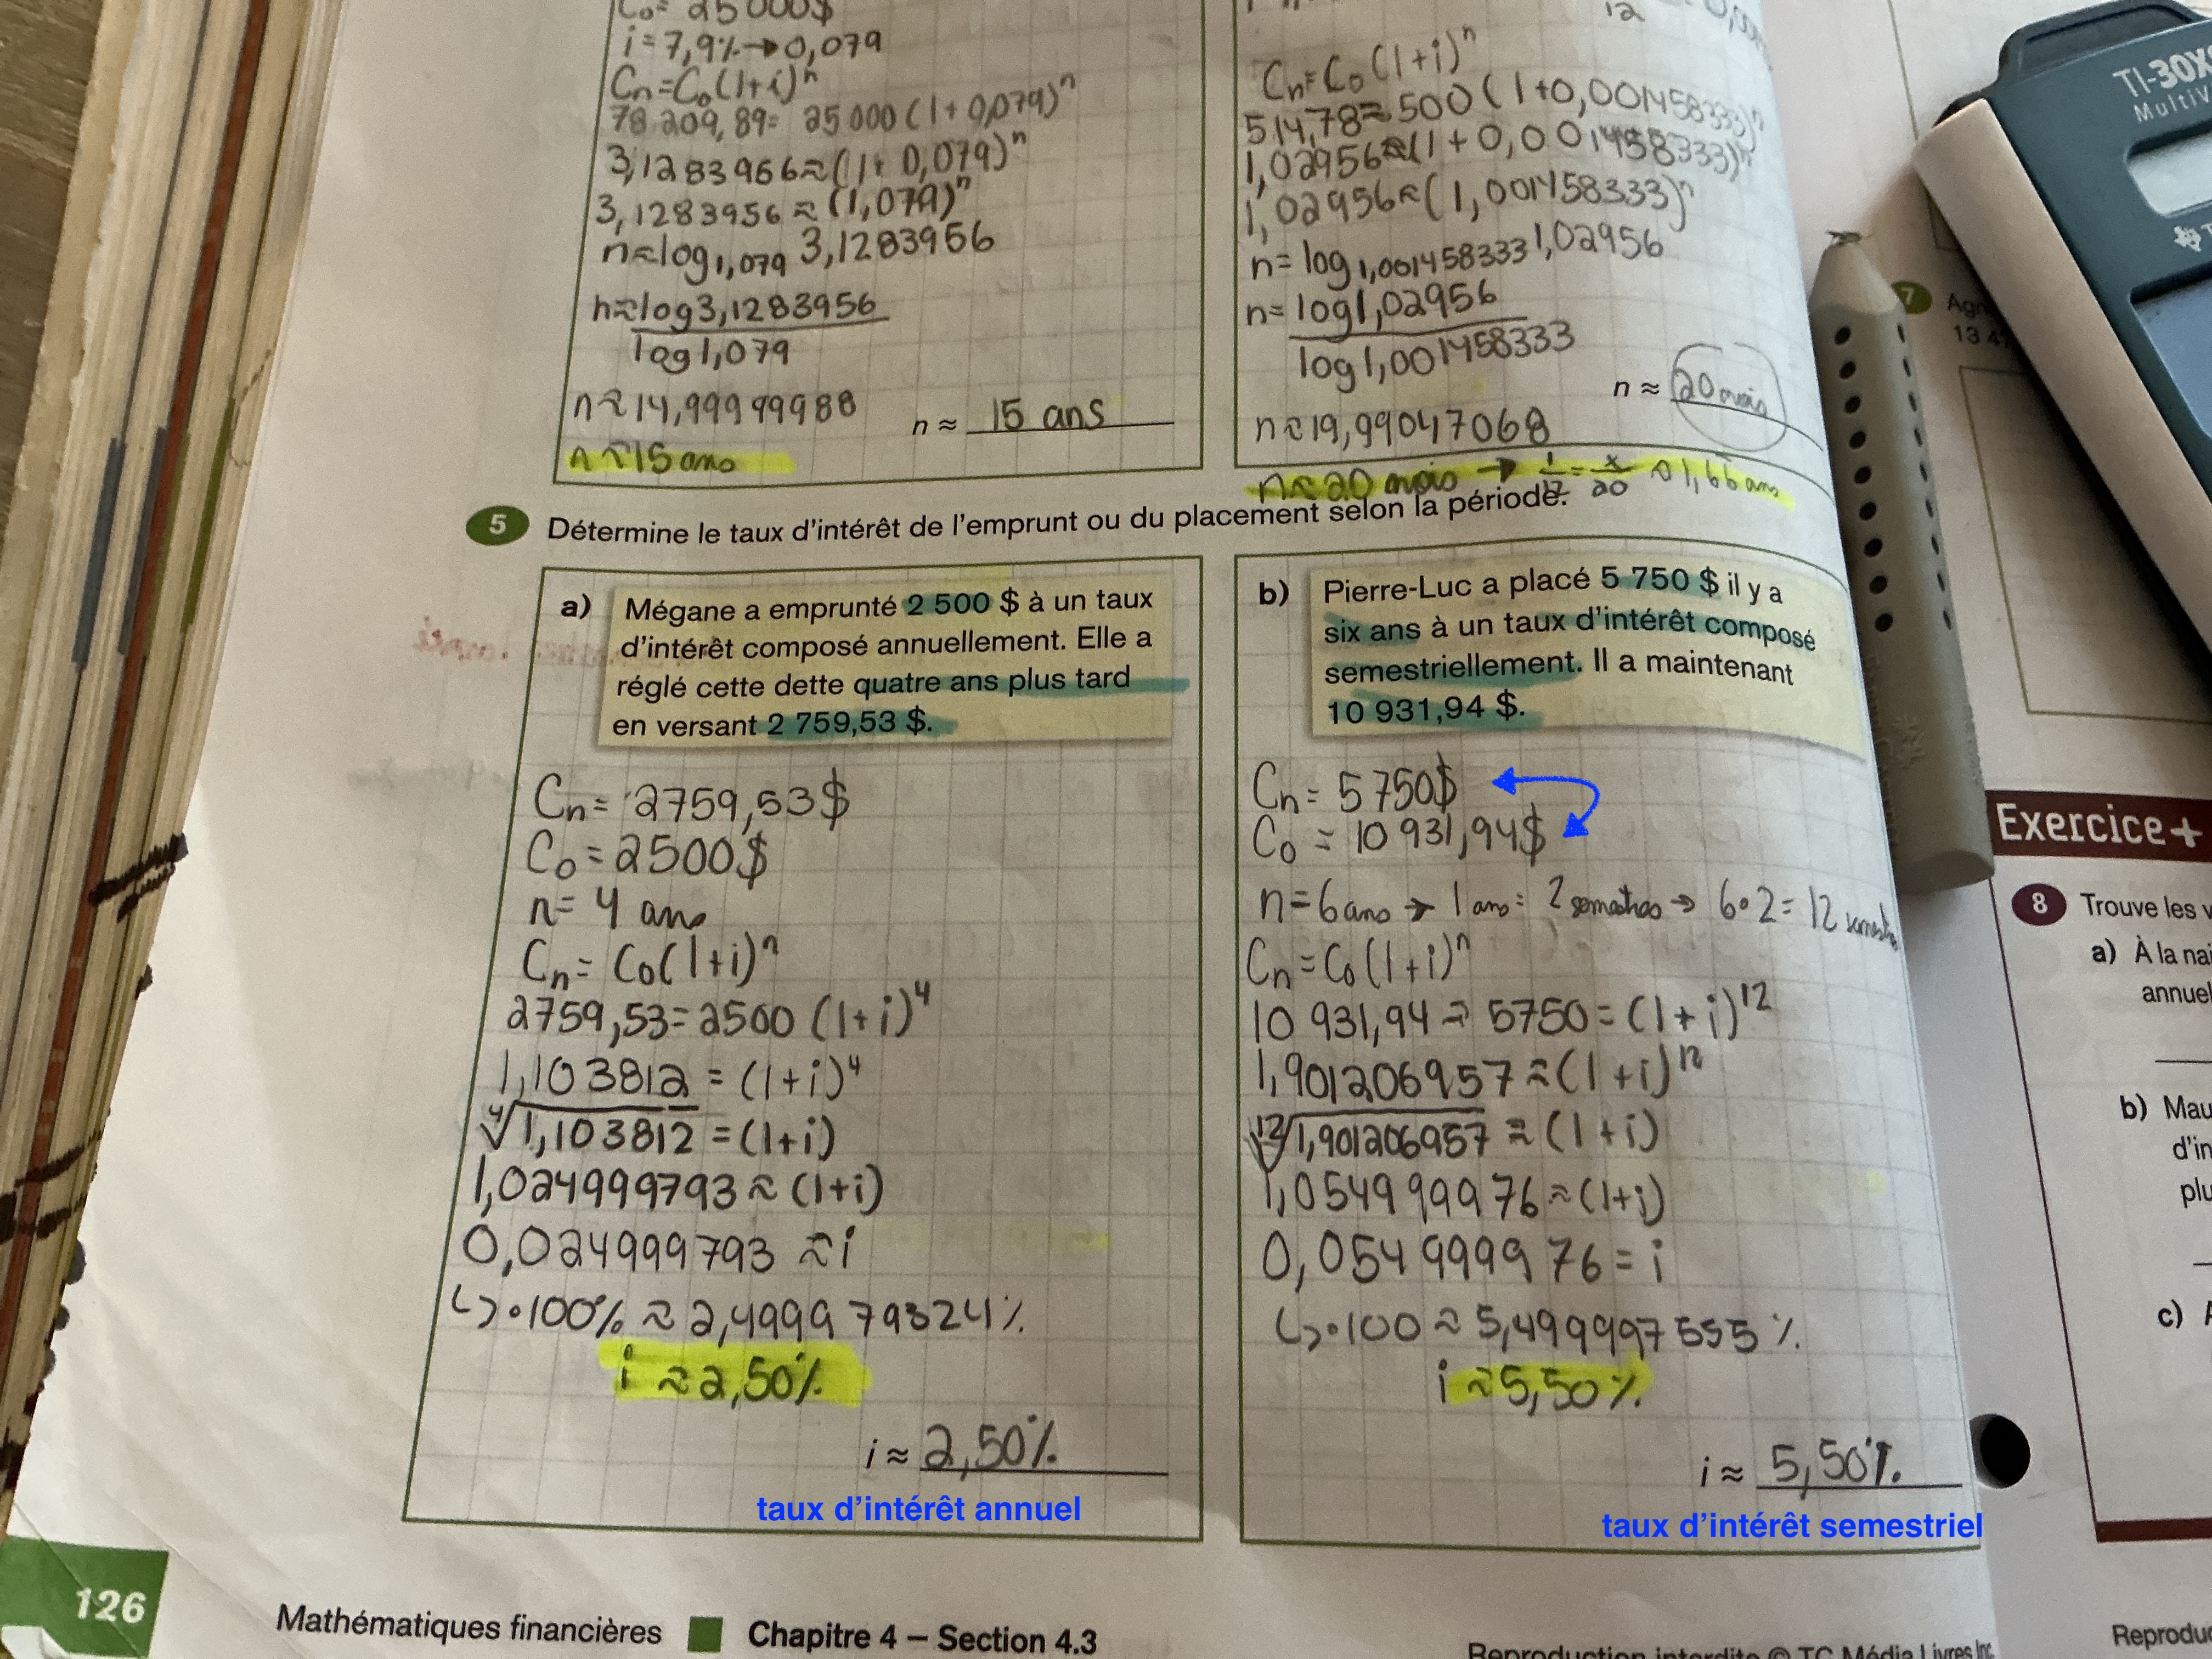 C₀= 25 000$
i=7,9%→0,079
Cn=C₀(1+i)ⁿ
78 209,89= 25 000(1+0,079)ⁿ
3,1283956≈(1+ 0,079)ⁿ
3,1283956≈(1,079)ⁿ
n≈log₁,₀₇₉ 3,1283956
n≈log3,1283956
log1,079
n≈14,99999988
n ≈ 15 ans
n≈15 ans
12
Cn=C₀(1+i)ⁿ
514,78≈500(1+0,001458333)ⁿ
1,02956≈(1+0,001458333)ⁿ
1,02956≈(1,001458333)ⁿ
n= log₁,₀₀₁₄₅₈₃₃₃ 1,02956
n= log1,02956
log1,001458333
n ≈ 20 mois
n≈19,99047068
n≈20 mois → 1/12 = x/20 ≈1,66 ans
5 Détermine le taux d'intérêt de l'emprunt ou du placement selon la période.
a) Mégane a emprunté 2 500 $ à un taux
d'intérêt composé annuellement. Elle a
réglé cette dette quatre ans plus tard
en versant 2 759,53 $.
Cn= 2759,53$
C₀=2500$
n= 4 ans
Cn= C₀(1+i)ⁿ
2759,53=2500 (1+i)⁴
1,103812 = (1+i)⁴
⁴√1,103812 = (1+i)
1,024999793≈(1+i)
0,024999793 ≈i
↳•100% ≈ 2,499979324%
i ≈2,50%
i ≈ 2,50%
taux d'intérêt annuel
b) Pierre-Luc a placé 5 750 $ il y a
six ans à un taux d'intérêt composé
semestriellement. Il a maintenant
10 931,94 $.
Cn= 5750$
C₀ = 10 931,94$
n=6 ans → 1 ans= 2 semestres → 6•2= 12 semestres
Cn=C₀(1+i)ⁿ
10 931,94 = 5750=(1+i)¹²
1,901206957≈(1+i)¹²
¹²√1,901206957 ≈ (1+i)
1,054999976≈(1+i)
0,054999976=i
↳•100≈5,499997555%
i ≈5,50%
i ≈ 5,50%
taux d'intérêt semestriel
126
Mathématiques financières Chapitre 4 – Section 4.3
Reproduction interdite © TC Média Livres Inc.
TI-30X
7
13 4
Exercice+
8 Trouve les v
a) À la nai
annuel
b) Mau
d'in
plu
c)
Reproduc